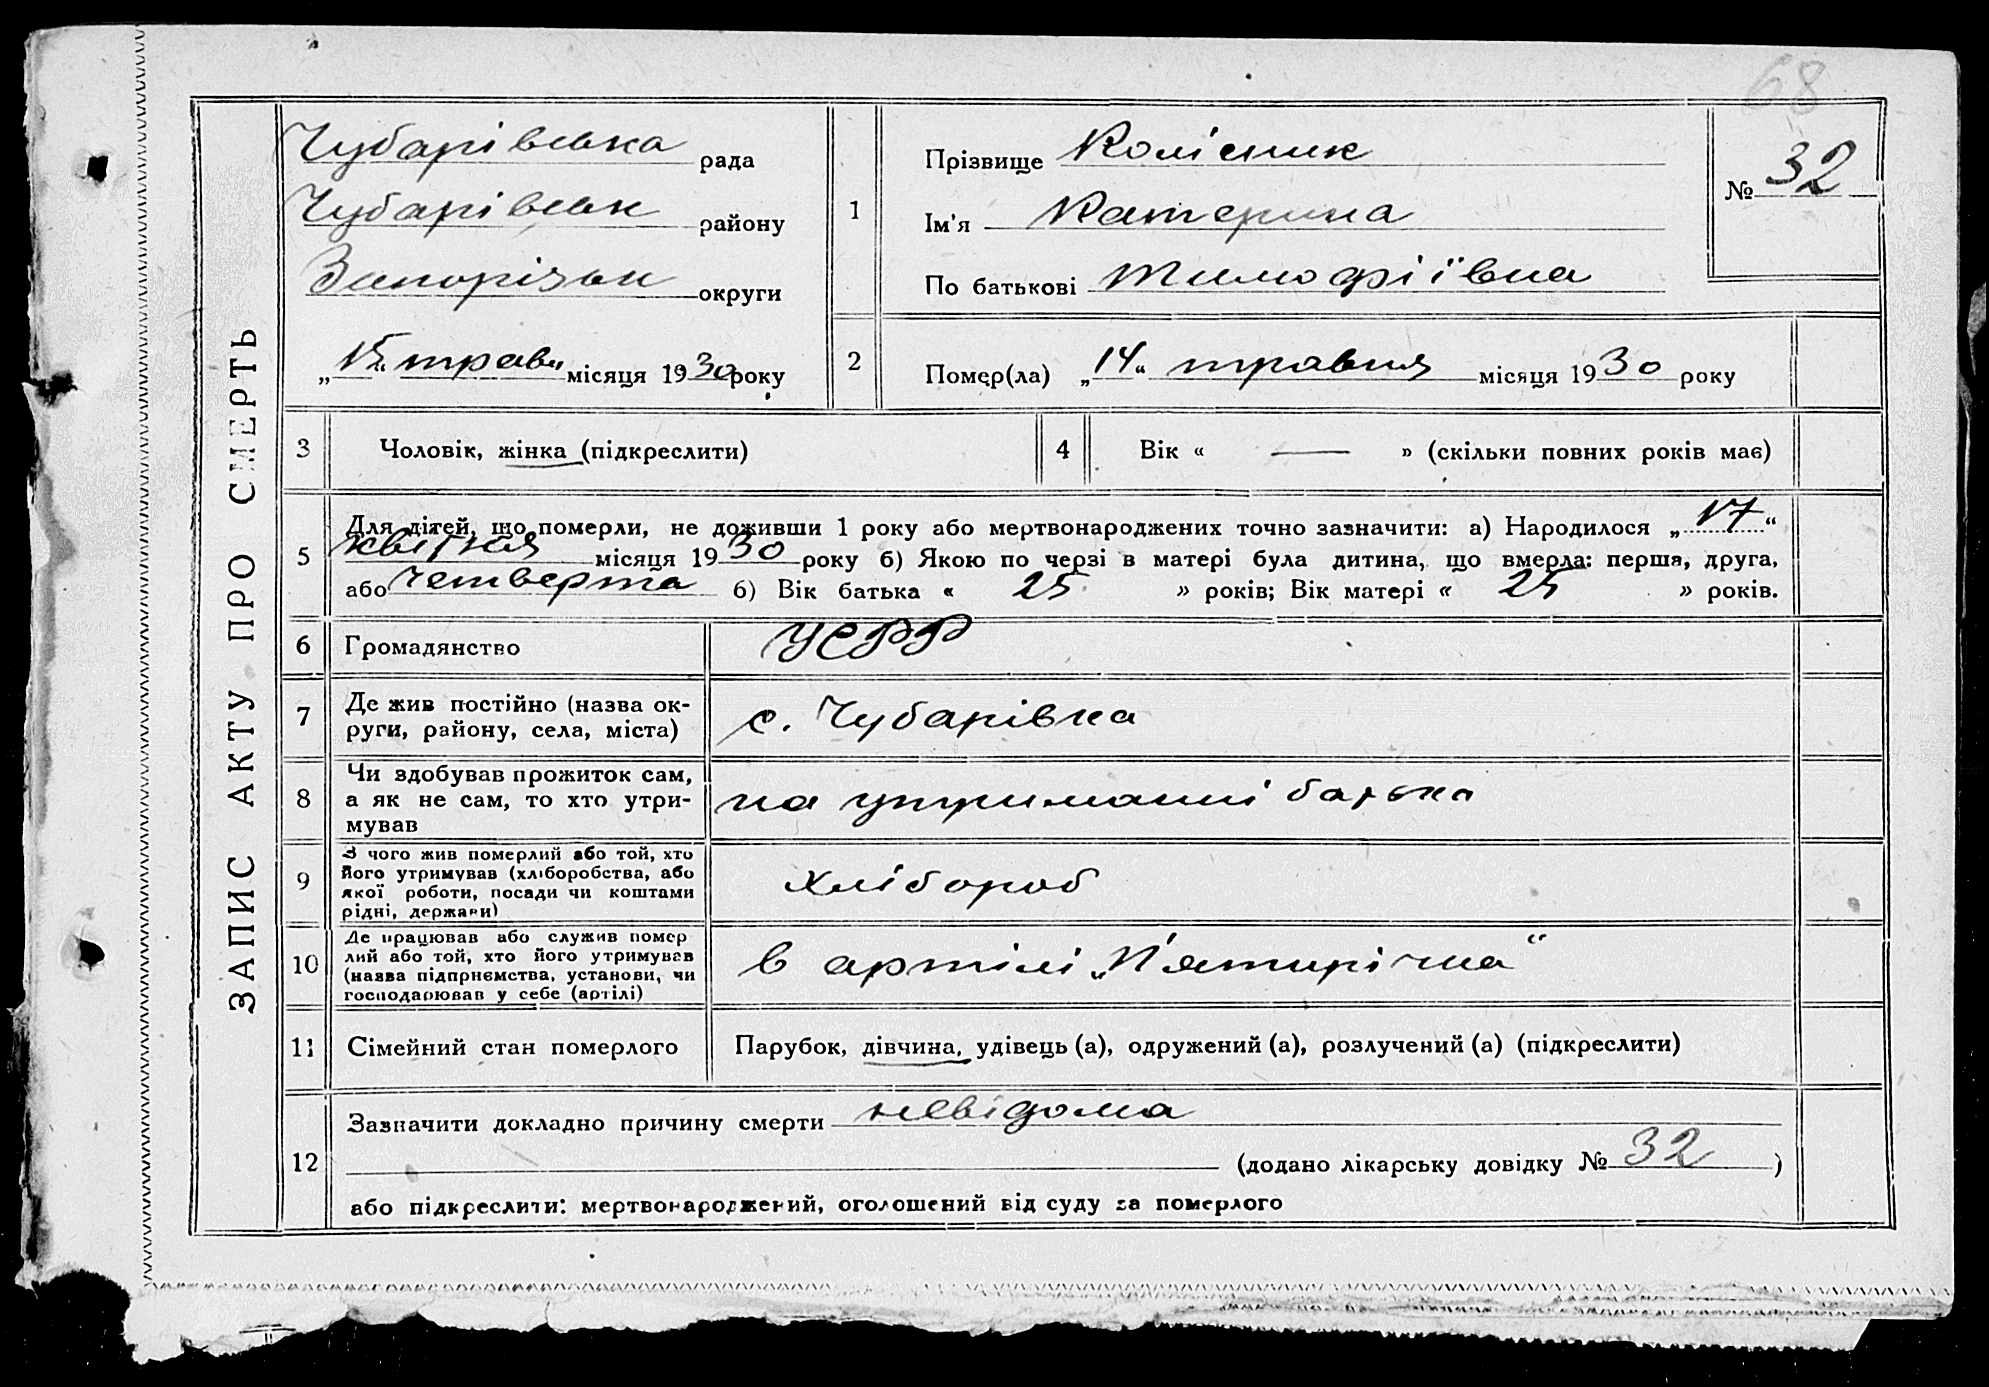 68
ЗАПИС АКТУ ПРО СМЕРТЬ
Чубарівська рада
Чубарівськ району
Запорізьк округи
„15“ трав. місяця 1930 року
1
Прізвище Колісник
Ім'я Катерина
По батькові Тимофіївна
№ 32
2
Помер(ла) „14“ травня місяця 1930 року
3 Чоловік, жінка (підкреслити)
4 Вік « — » (скільки повних років має)
5
Для дітей, що померли, не доживши 1 року або мертвонароджених точно зазначити: а) Народилося „17“
квітня місяця 1930 року б) Якою по черзі в матері була дитина, що вмерла: перша, друга,
або четверта б) Вік батька « 25 » років; Вік матері « 25 » років.
6 Громадянство УСРР
7 Де жив постійно (назва ок-
руги, району, села, міста) с. Чубарівка
8
Чи здобував прожиток сам,
а як не сам, то хто утри-
мував
на утриманні батька
9
З чого жив померлий або той, хто
його утримував (хліборобства, або
якої роботи, посади чи коштами
рідні, держави)
хлібороб
10
Де працював або служив помер
лий або той, хто його утримував
(назва підприємства, установи, чи
господарював у себе (артілі)
в артілі „П'ятирічка“
11 Сімейний стан померлого Парубок, дівчина, удівець (а), одружений (а), розлучений (а) (підкреслити)
12
Зазначити докладно причину смерти невідома
(додано лікарську довідку № 32)
або підкреслити: мертвонароджений, оголошений від суду за померлого